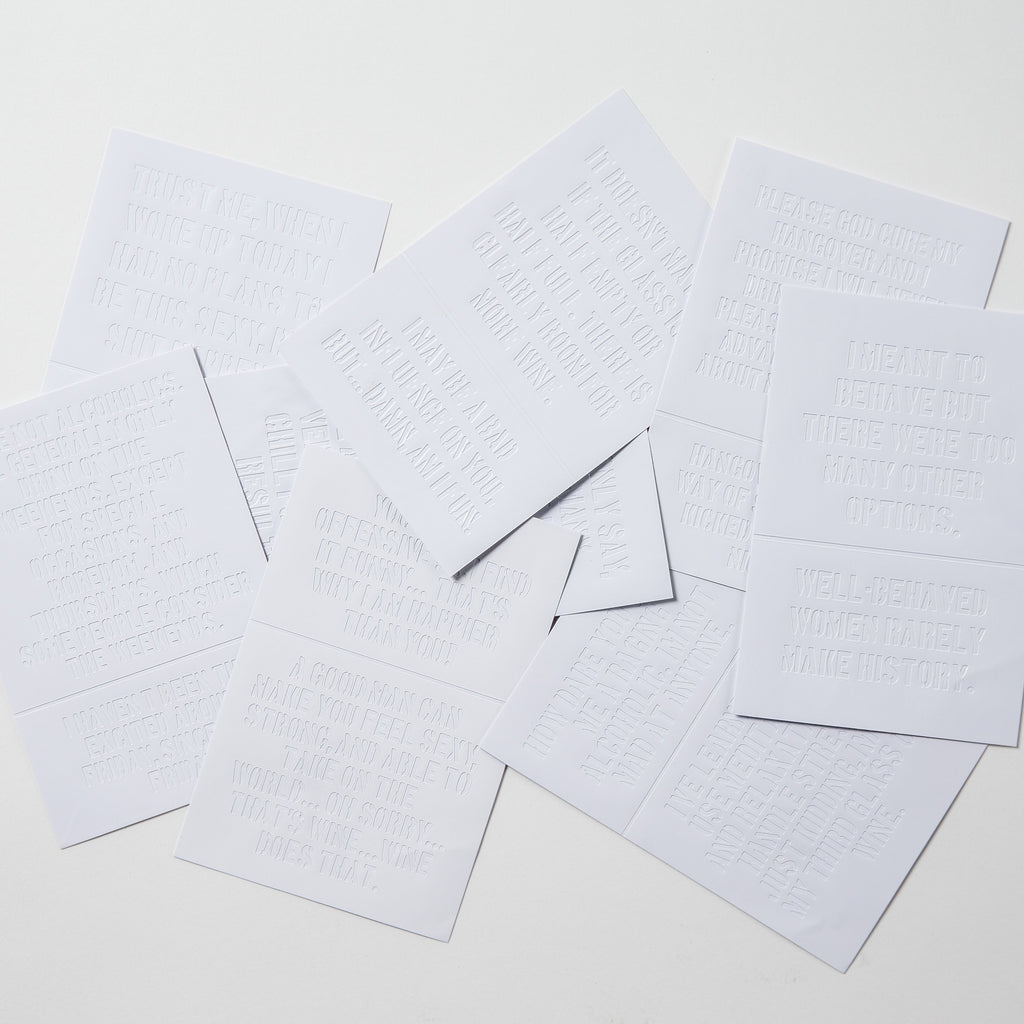 TRUST ME, WHEN I
WOKE UP TODAY I
HAD NO PLANS TO
BE THIS SEXY,
IT DOESN'T
IF THE GLASS IS
HALF EMPTY OR
HALF FULL. THERE IS
CLEARLY ROOM FOR
MORE WINE.
I MAY BE A BAD
INFLUENCE ON YOU,
BUT... DAMN, AM I FUN.
PLEASE GOD CURE MY
HANGOVER AND I
PROMISE I WILL NEVER
ABOUT
WAY OF
I MEANT TO
BEHAVE BUT
THERE WERE TOO
MANY OTHER
OPTIONS.
WELL-BEHAVED
WOMEN RARELY
MAKE HISTORY.
NOT ALCOHOLICS
GENERALLY ONLY
DRAWN ON THE
WEEKENDS, EXCEPT
FOR SPECIAL
OCCASIONS, AND
BOREDOM, AND
THURSDAYS, WHICH
SOME PEOPLE CONSIDER
THE WEEKENDS.
I HAVEN'T BEEN THIS
EXCITED ABOUT
FRIDAY SINCE
SAY
OFFENSIVE FIND
IT FUNNY... THAT'S
WHY I AM HAPPIER
THAN YOU!
A GOOD MAN CAN
MAKE YOU FEEL SEXY,
STRONG, AND ABLE TO
TAKE ON THE
WORLD... OH SORRY...
THAT'S WINE... WINE
DOES THAT.
HOW DARE
ME A RAGING
ALCOHOLIC. I'M NOT
MAD AT ANYONE
JUST KIDDING,
MY THIRD GLASS
WINE.